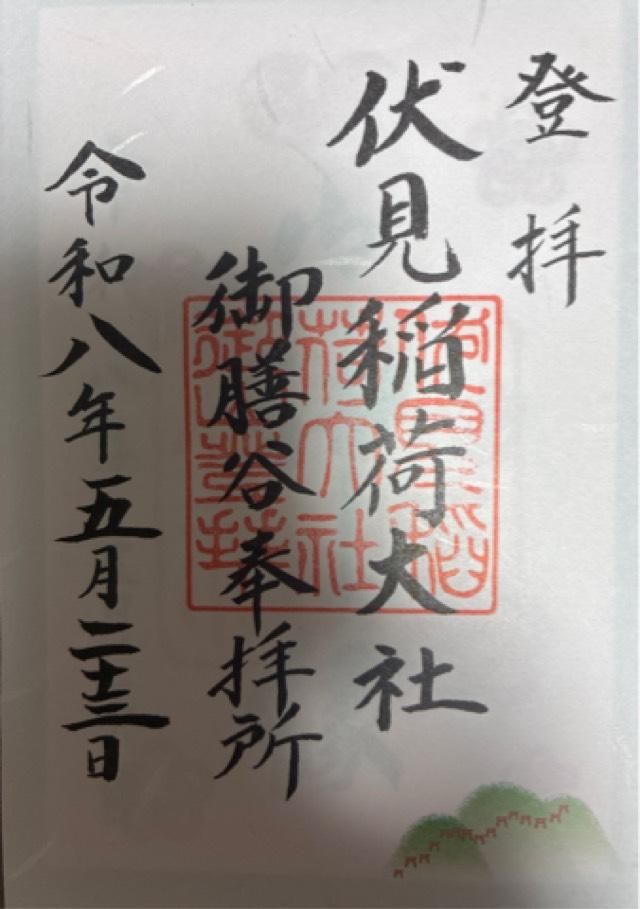 登拝
伏見稲荷大社
御膳谷奉拝所
令和八年五月二十三日
伏見稲
荷大社